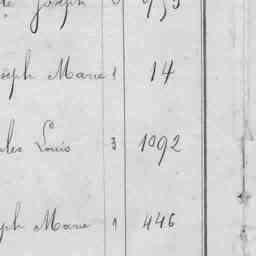 Joseph
seph Marie 1 14
les Louis 3 1092
ph Marie 1 446